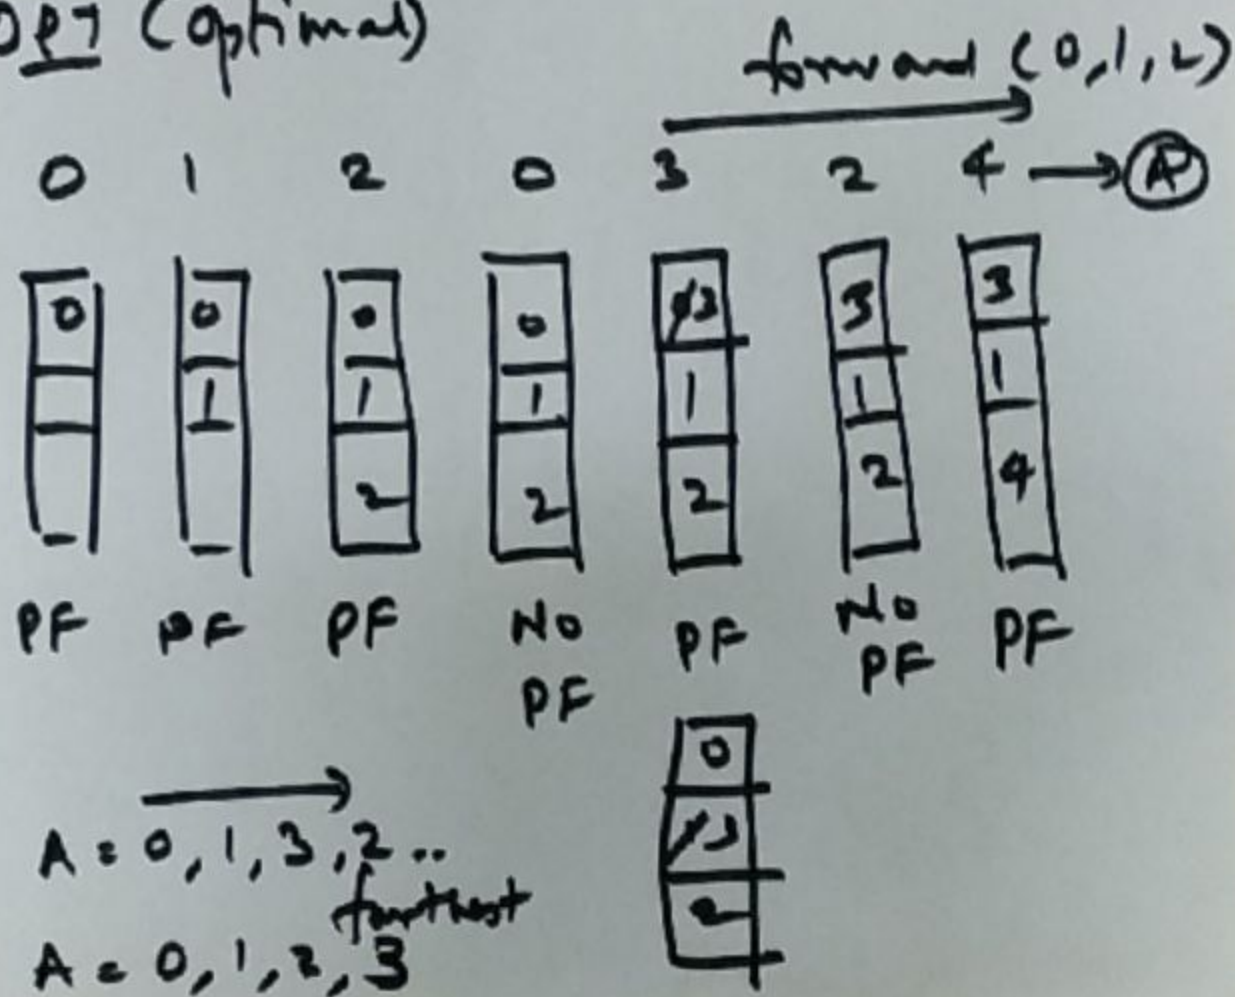 OPT (Optimal)
forward (0,1,2)
0 1 2 0 3 2 4 → A
0 0 0 0 0 3 3 3
1 1 1 1 1 1
2 2 2 2 4
PF PF PF No PF PF No PF PF
0
1 3
2
A = 0, 1, 3, 2 ..
farthest
A = 0, 1, 2, 3